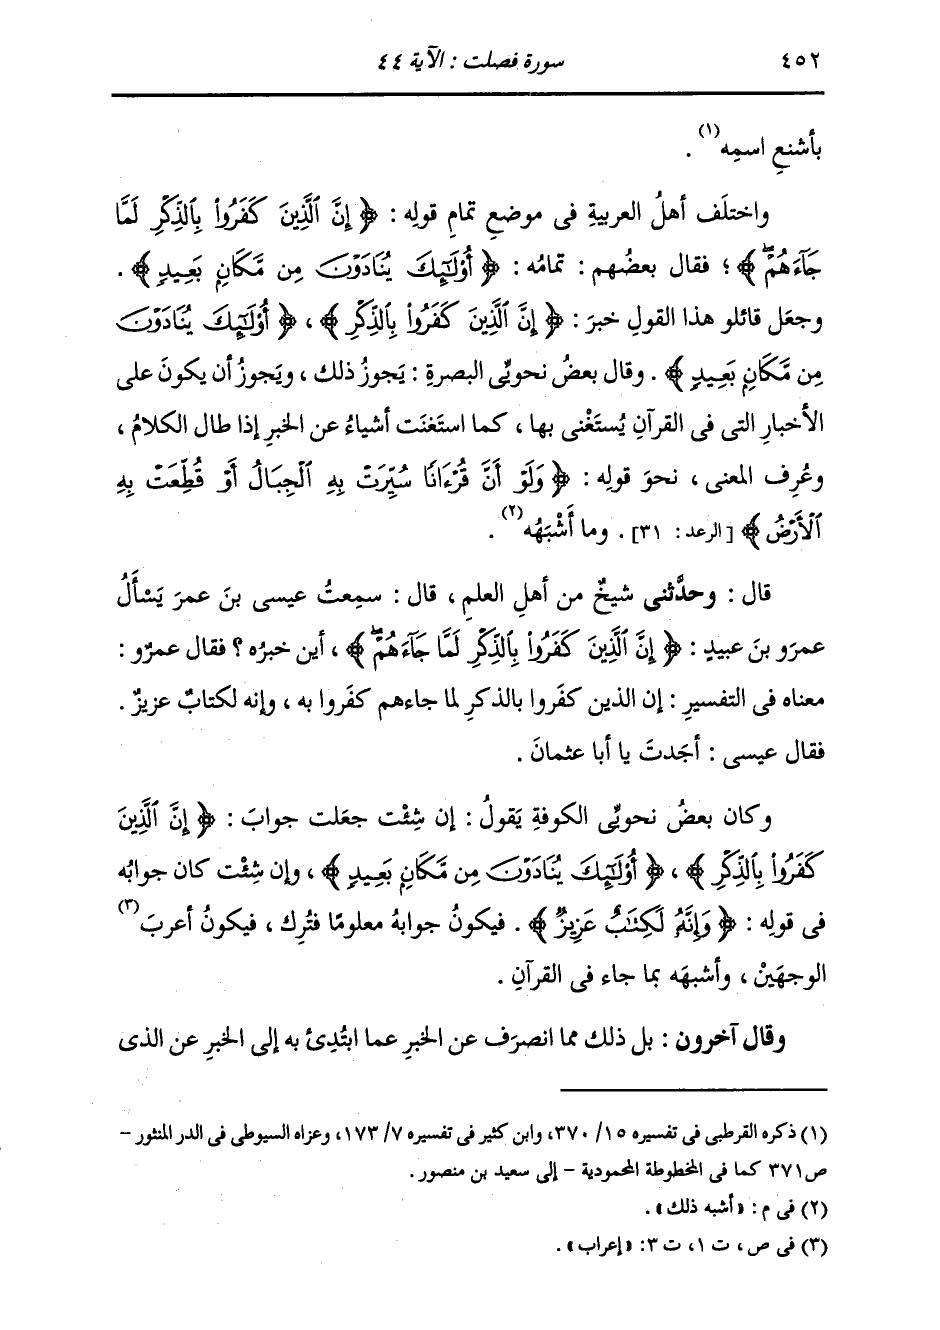 ٤٥٢ سورة فصلت : الآية ٤٤
بأشنعِ اسمِه(١) .
واختلَف أهلُ العربيةِ فى موضعِ تمامِ قولِه : ﴿ إِنَّ ٱلَّذِينَ كَفَرُوا۟ بِٱلذِّكْرِ لَمَّا
جَآءَهُمْۖ ﴾ ؛ فقال بعضُهم : تمامُه : ﴿ أُو۟لَٰٓئِكَ يُنَادَوْنَ مِن مَّكَانِۭ بَعِيدٍ ﴾ .
وجعَل قائلو هذا القولِ خبرَ : ﴿ إِنَّ ٱلَّذِينَ كَفَرُوا۟ بِٱلذِّكْرِ ﴾ ، ﴿ أُو۟لَٰٓئِكَ يُنَادَوْنَ
مِن مَّكَانِۭ بَعِيدٍ ﴾ . وقال بعضُ نحويِّى البصرةِ : يَجوزُ ذلك ، ويَجوزُ أن يكونَ على
الأخبارِ التى فى القرآنِ يُستَغْنى بها ، كما استَغنَت أشياءُ عن الخبرِ إذا طال الكلامُ ،
وعُرِف المعنى ، نحوَ قولِه : ﴿ وَلَوْ أَنَّ قُرْءَانًا سُيِّرَتْ بِهِ ٱلْجِبَالُ أَوْ قُطِّعَتْ بِهِ
ٱلْأَرْضُ ﴾ [الرعد : ٣١] . وما أَشْبَهَه(٢) .
قال : وحدَّثنى شيخٌ من أهلِ العلمِ ، قال : سمِعتُ عيسى بنَ عمرَ يَسْأَلُ
عمرَو بنَ عبيدٍ : ﴿ إِنَّ ٱلَّذِينَ كَفَرُوا۟ بِٱلذِّكْرِ لَمَّا جَآءَهُمْۖ ﴾ ، أين خبرُه ؟ فقال عمرٌو :
معناه فى التفسيرِ : إن الذين كفَروا بالذكرِ لما جاءهم كفَروا به ، وإنه لكتابٌ عزيزٌ .
فقال عيسى : أجَدتَ يا أبا عثمانَ .
وكان بعضُ نحويِّى الكوفةِ يَقولُ : إن شِئْت جعَلت جوابَ : ﴿ إِنَّ ٱلَّذِينَ
كَفَرُوا۟ بِٱلذِّكْرِ ﴾ ، ﴿ أُو۟لَٰٓئِكَ يُنَادَوْنَ مِن مَّكَانِۭ بَعِيدٍ ﴾ ، وإن شِئْت كان جوابُه
فى قولِه : ﴿ وَإِنَّهُۥ لَكِتَٰبٌ عَزِيزٌ ﴾ . فيكونُ جوابهُ معلومًا فتُرِك ، فيكونُ أعربَ(٣)
الوجهَيْن ، وأشبهَه بما جاء فى القرآنِ .
وقال آخرون : بل ذلك مما انصرَف عن الخبرِ عما ابتُدِئ به إلى الخبرِ عن الذى
(١) ذكره القرطبى فى تفسيره ١٥/ ٣٧٠، وابن كثير فى تفسيره ٧/ ١٧٣، وعزاه السيوطى فى الدر المنثور –
ص٣٧١ كما فى المخطوطة المحمودية – إلى سعيد بن منصور .
(٢) فى م : «أشبه ذلك» .
(٣) فى ص ، ت ١، ت ٣: «إعراب» .